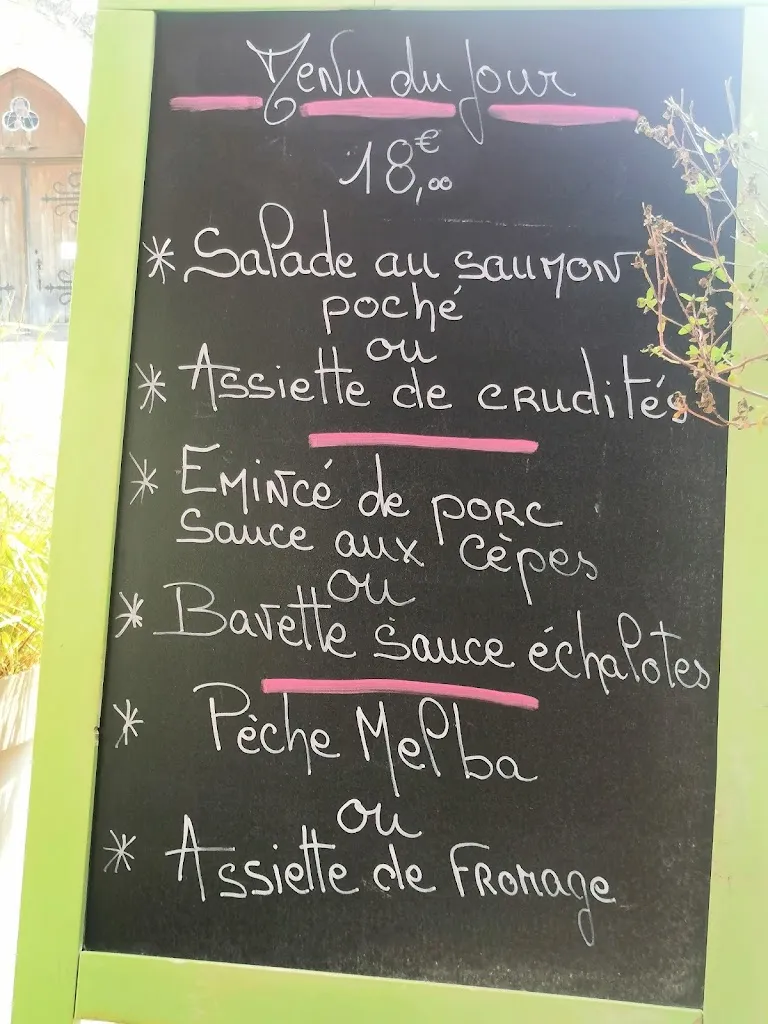 Menu du jour
18,00€
* Salade au saumon
poché
ou
* Assiette de crudités
* Emincé de porc
sauce aux cèpes
ou
* Bavette sauce échalotes
* Pèche Melba
ou
* Assiette de Fromage